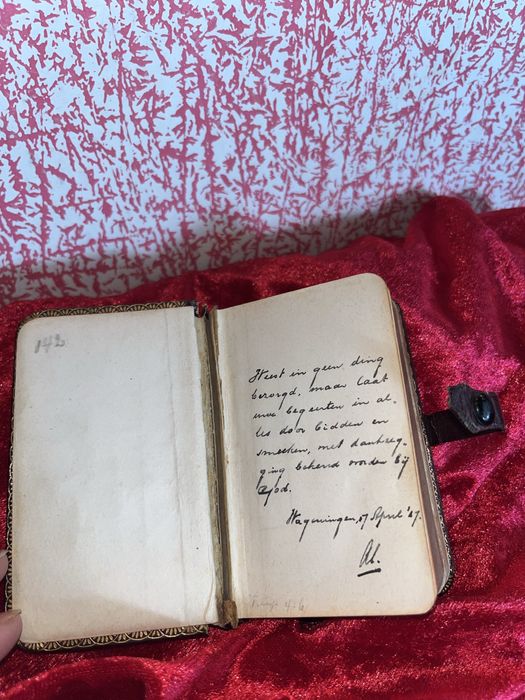 142
Weest in geen ding
bezorgd, maar laat
uwe begeerten in al-
les door bidden en
smeeken, met dankzeg-
ging bekend worden bij
God.
Wageningen, 17 April '47.